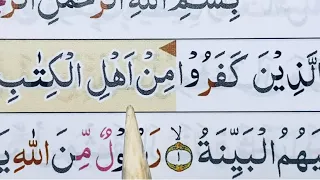 بِسْمِ اللهِ الرَّحْمٰنِ
الَّذِيْنَ كَفَرُوْا مِنْ اَهْلِ الْكِتٰبِ
الْبَيِّنَةُ ۙ ١ رَسُوْلٌ مِّنَ اللهِ